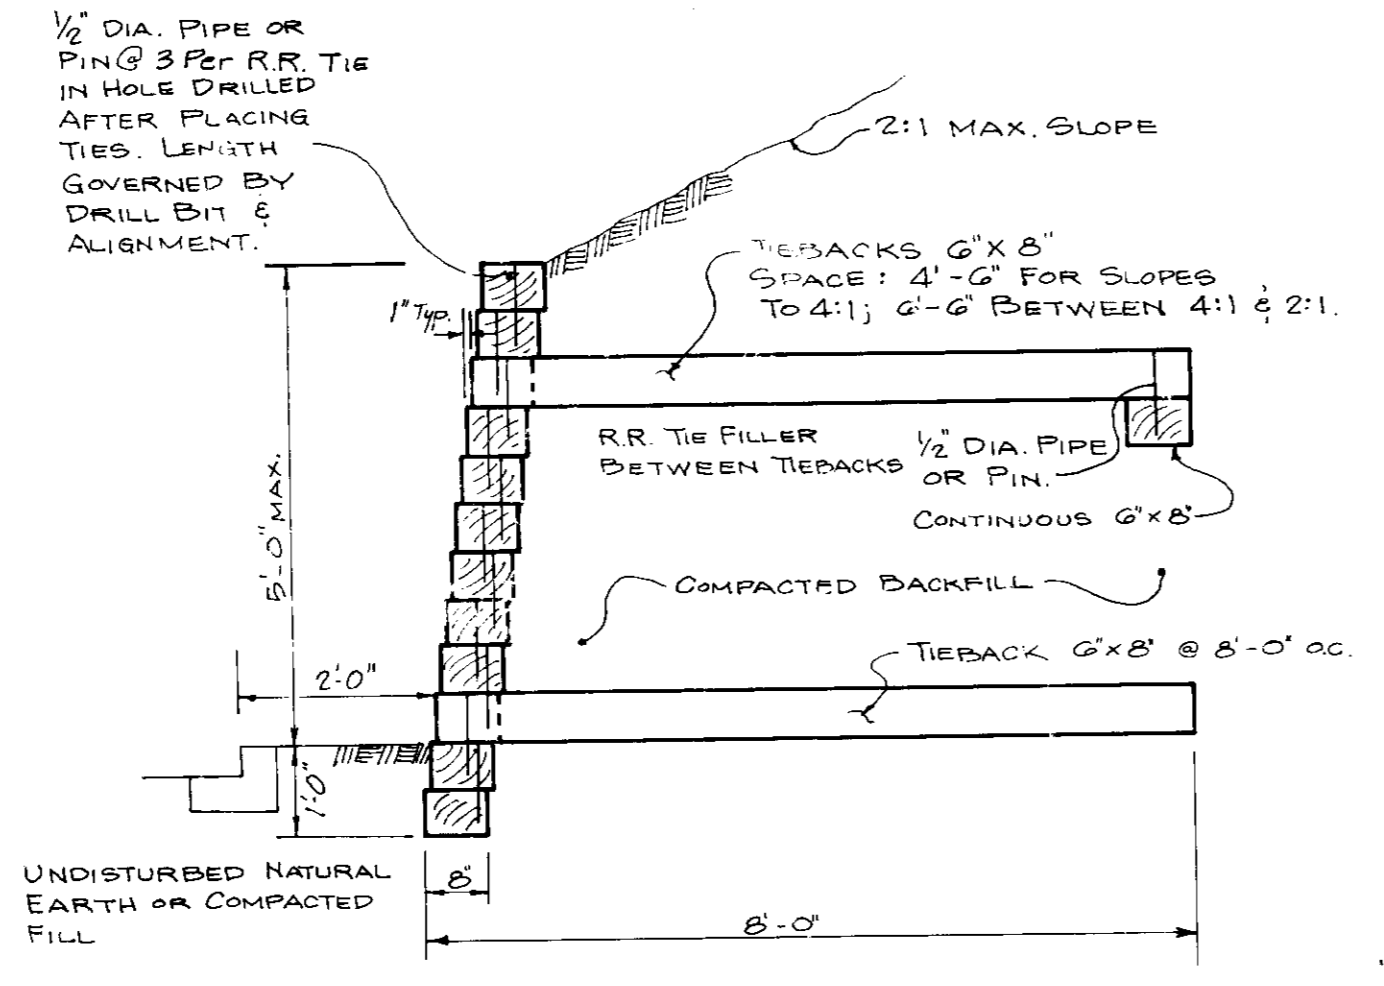 1/2" DIA. PIPE OR
PIN @ 3 Per R.R. TIE
IN HOLE DRILLED
AFTER PLACING
TIES. LENGTH
GOVERNED BY
DRILL BIT &
ALIGNMENT.
2:1 MAX. SLOPE
TIEBACKS 6" X 8"
SPACE: 4'-6" FOR SLOPES
TO 4:1; 6'-6" BETWEEN 4:1 & 2:1.
1" TYP.
R.R. TIE FILLER
BETWEEN TIEBACKS
1/2" DIA. PIPE
OR PIN.
CONTINUOUS 6" X 8"
5'-0" MAX.
COMPACTED BACKFILL
TIEBACK 6" X 8" @ 8'-0" O.C.
2'-0"
1'-0"
UNDISTURBED NATURAL
EARTH OR COMPACTED
FILL
8"
8'-0"